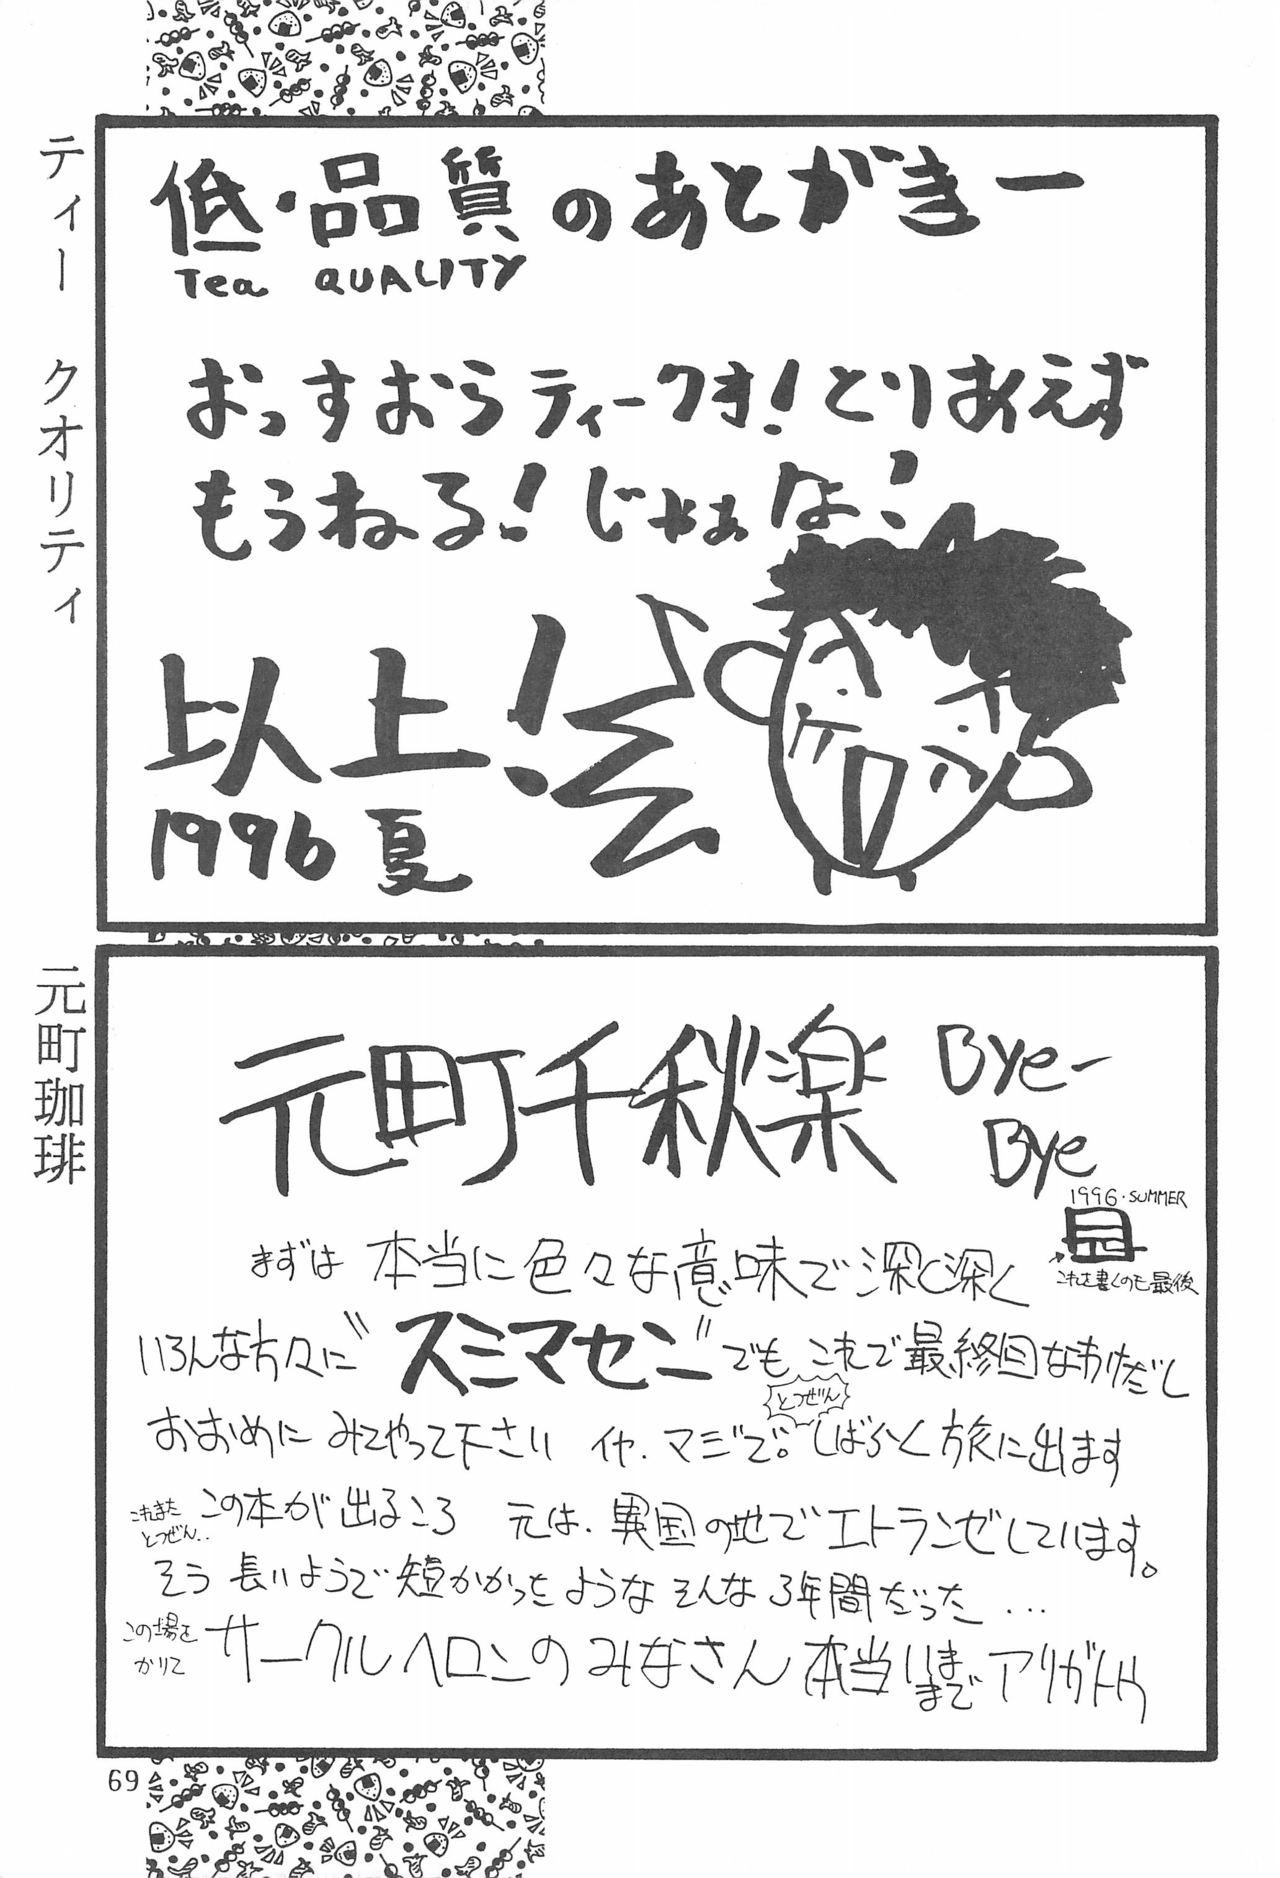 ティー クオリティ
低・品質のあとがきー
Tea QUALITY
おっすおらティークオ！とりあえず
もうねる！じゃあな！
以上！
1996 夏
元町珈琲
元町千秋楽
Bye-
Bye
1996・SUMMER
これを書くのも最後
まずは 本当に色々な意味で深く深く
いろんな方々に〝スミマセン〟でも これで最終回なわけだし
おおめに みてやって下さい イヤ.マジで。しばらく旅に出ます
とつぜん
これまた
とつぜん..
この本が出るころ 元は.異国の地でエトランゼしています。
そう 長いようで短かかったような そんな 3年間だった...
この場を
かりて
サークルヘロンの みなさん 本当いままで アリガトウ
69